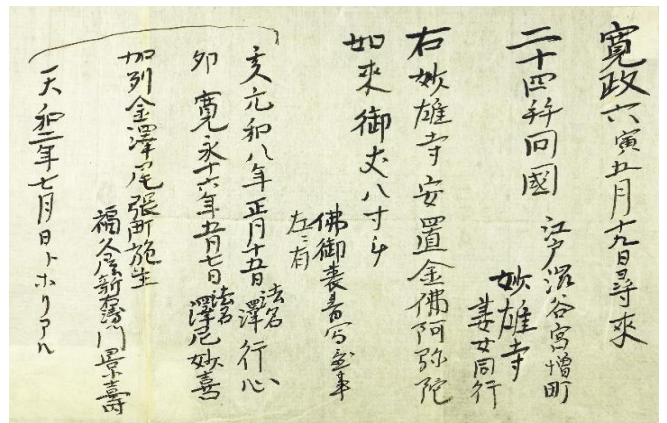 寛政六寅五月十九日尋来
二十四拝回國
江戸渋谷宮増町
妙雄寺
妻女同行
右妙雄寺安置金佛阿弥陀
如来御丈八寸斗
佛御裏書写
左ニ有
亥元和八年正月十五日法名澤行心
卯寛永十六年五月七日法名澤尼妙喜
加列金澤尾張町施主
福久屋新右衛門景壽
天和二年七月日トホリアル